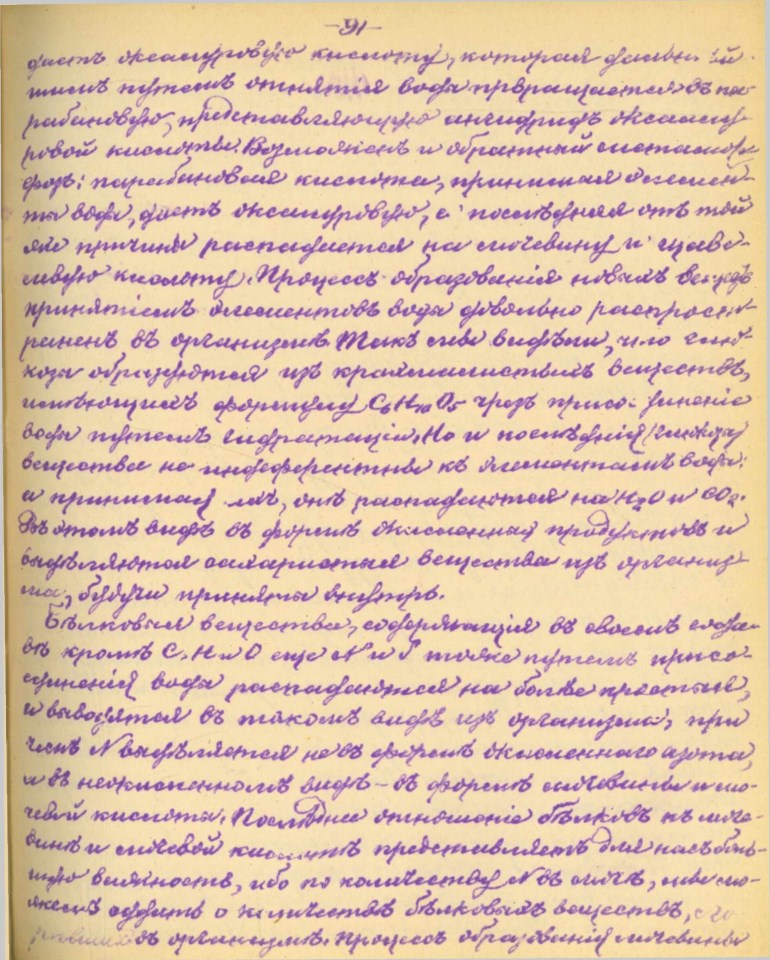 -91-
дастъ оксалуровую кислоту, которая дальнѣй
шимъ путемъ отнятія воды превращается въ па-
рабановую, представляющую ангидридъ оксалу-
ровой кислоты. Возможенъ и обратный метамор-
фозъ: парабановая кислота, принимая элемен-
ты воды, дастъ оксалуровую, а послѣдняя отъ той
же причины распадается на мочевину и щаве-
левую кислоту. Процессъ образованія новыхъ веществъ
принятіемъ элементовъ воды довольно распрост-
раненъ въ организмѣ. Такъ мы видѣли, что глю-
коза образуются изъ крахмалистыхъ веществъ,
имѣющихъ формулу C6H10O5 чрезъ присоединеніе
воды путемъ гидратаціи. Но и послѣднія (глюкоза)
вещества не индеферентны къ элементамъ воды:
и принимая ихъ, онѣ распадаются на H2O и CO2.
Въ этомъ видѣ въ формѣ окисленныхъ продуктовъ и
выдѣляются сахаристыя вещества изъ организ-
ма, будучи приняты внутрь.
Бѣлковыя вещества, содержащія въ своемъ соста-
вѣ кромѣ C, H и O еще N и S тоже путемъ присо-
единенія воды распадаются на болѣе простыя,
и выводятся въ такомъ видѣ изъ организма, при
чемъ N выдѣляется не въ формѣ окисленнаго азота,
а въ неокисленномъ видѣ - въ формѣ мочевины и мо-
чевой кислоты. Послѣднее отношеніе бѣлковъ къ моче-
винѣ и мочевой кислотѣ представляетъ для насъ боль-
шую важность, ибо по количеству N въ мочѣ, мы мо-
жемъ судить о количествѣ бѣлковыхъ веществъ,
въ организмѣ. Процессъ образованія мочевины